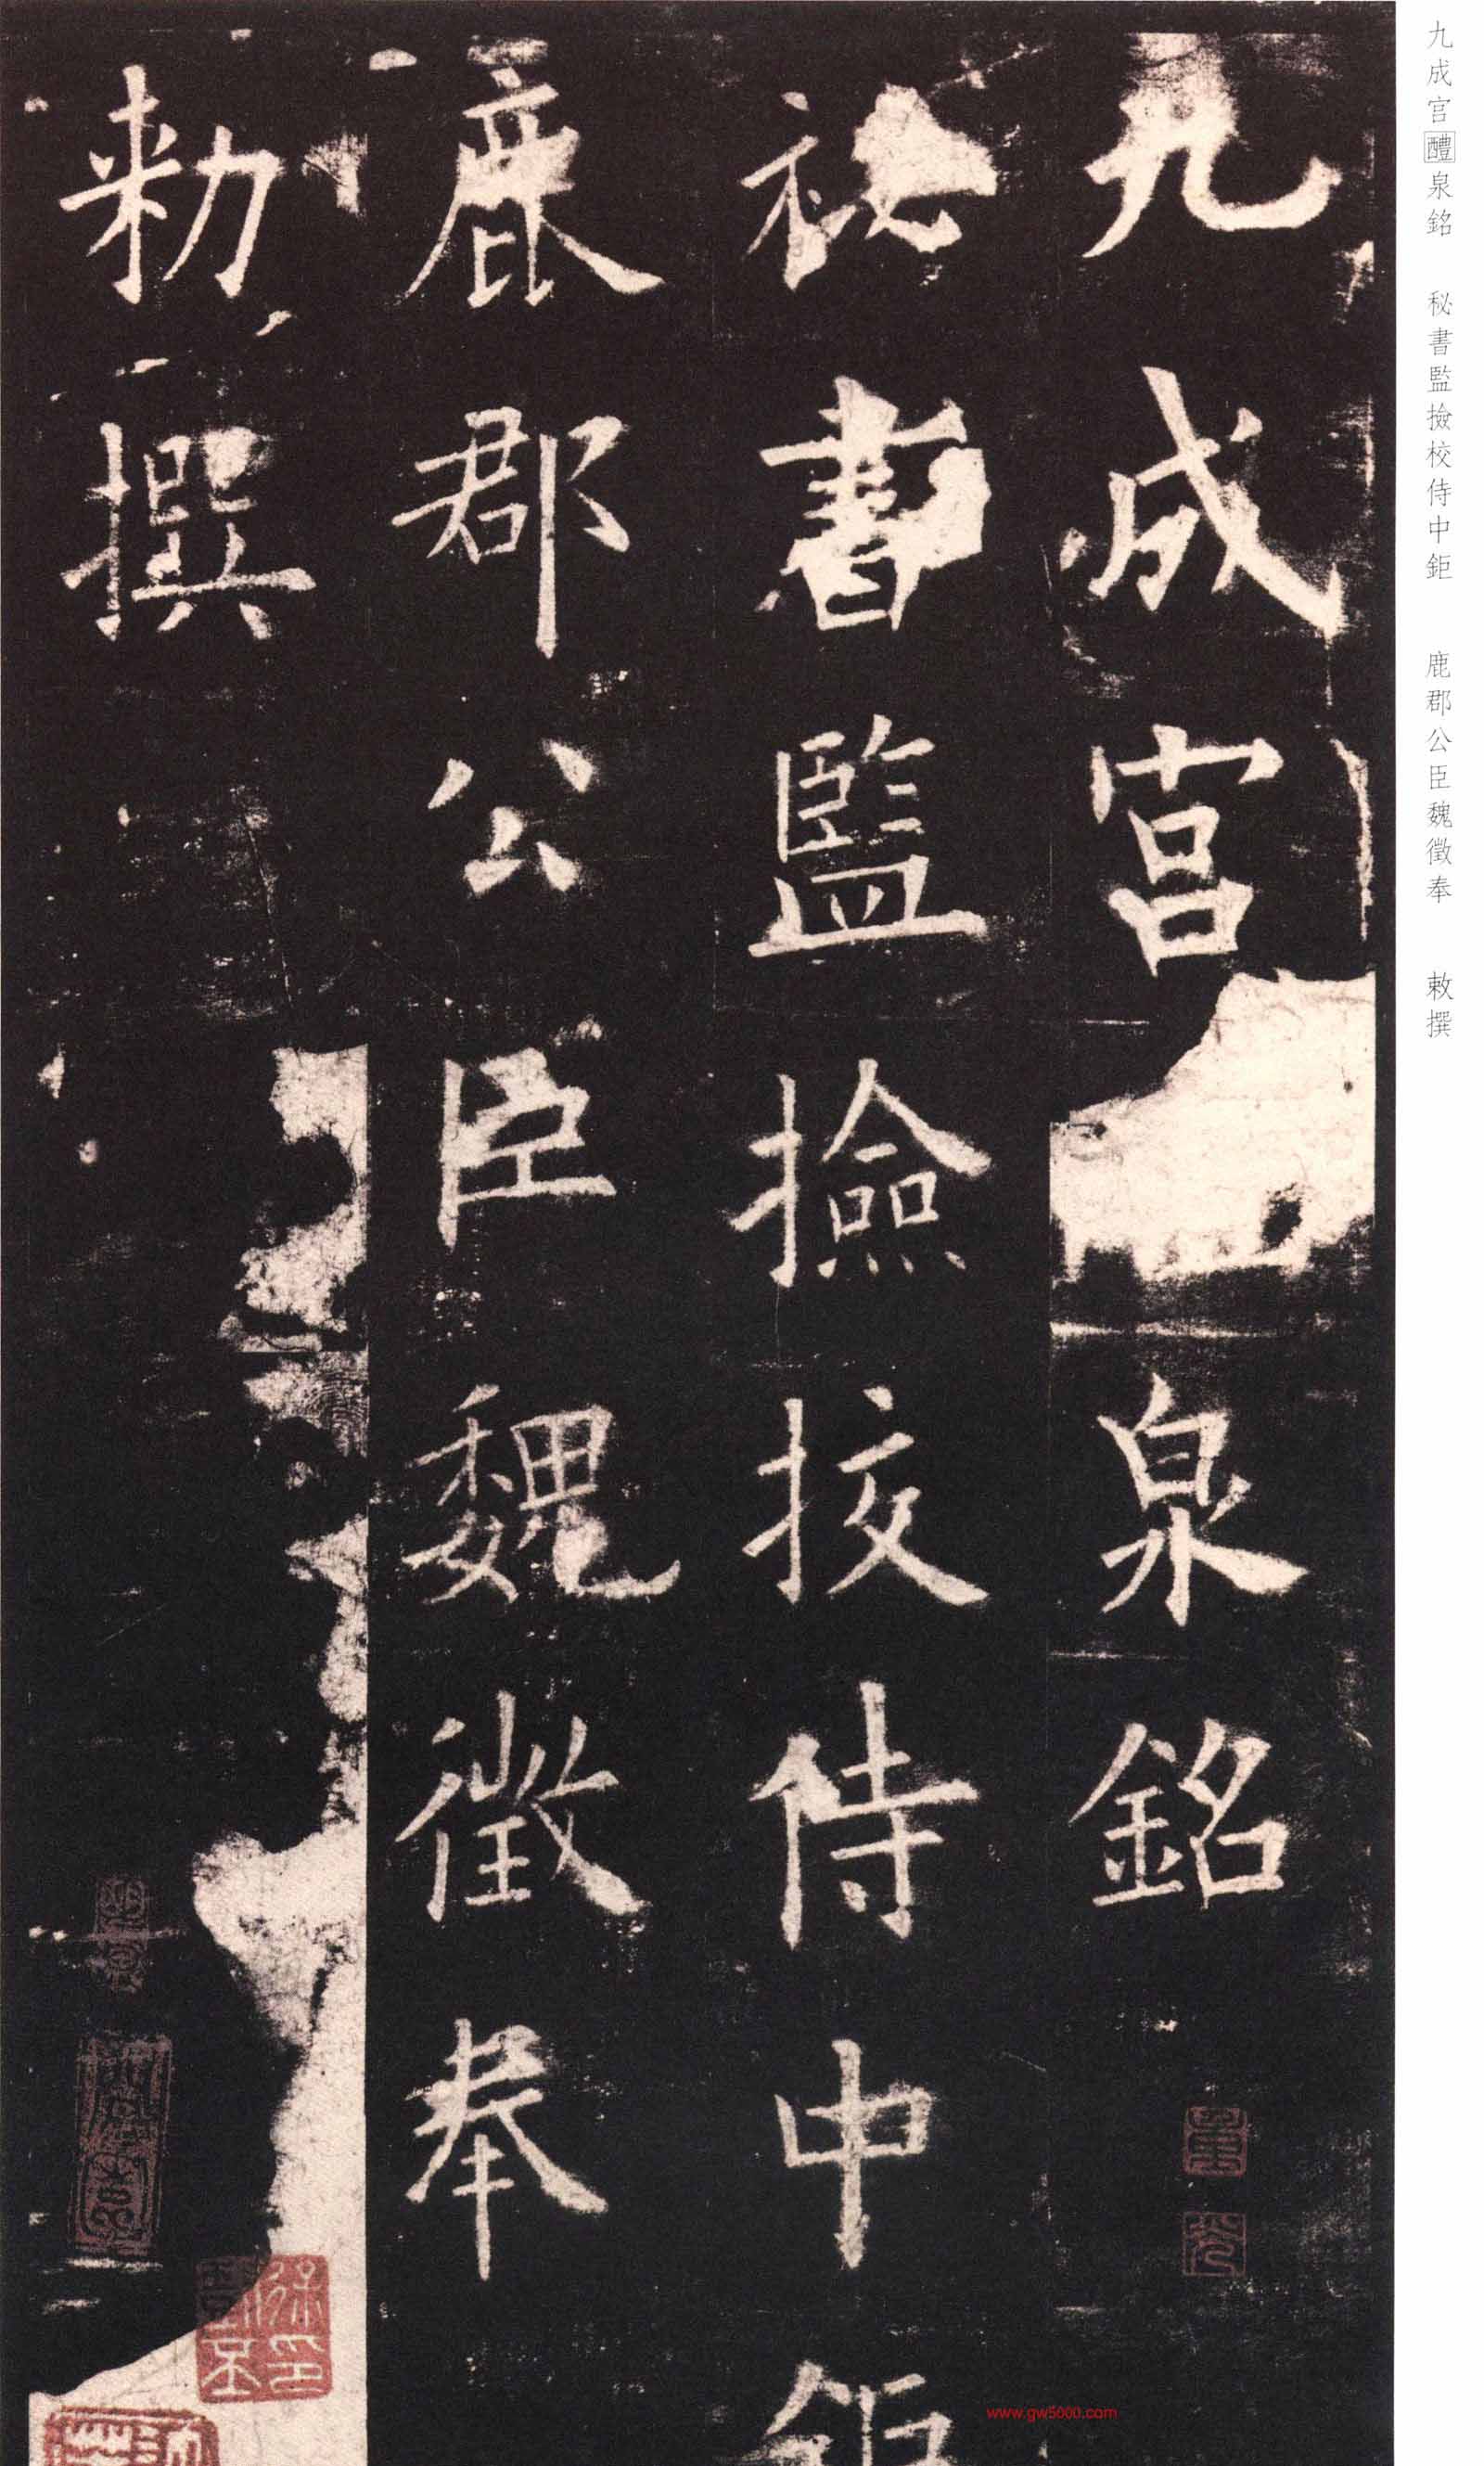 九成宮醴泉銘 秘書監撿校侍中鉅 鹿郡公臣魏徵奉 敕撰
九成宮泉銘
祕書監撿挍侍中鉅
鹿郡公臣魏徵奉
勑撰
www.gw5000.com